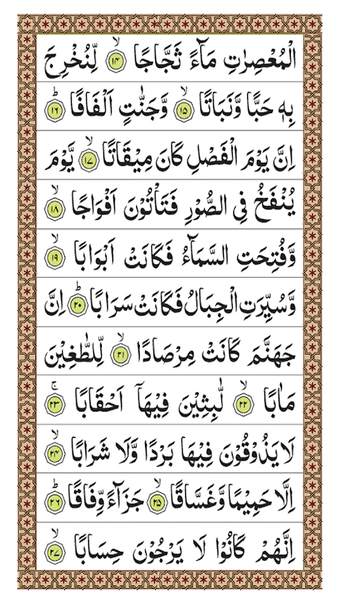 الْمُعْصِرٰتِ مَآءً ثَجَّاجًا ۙ﴿۱۴﴾ لِّنُخْرِجَ
بِهٖ حَبًّا وَّنَبَاتًا ۙ﴿۱۵﴾ وَّجَنّٰتٍ اَلْفَافًا ؕ﴿۱۶﴾
اِنَّ يَوْمَ الْفَصْلِ كَانَ مِيْقَاتًا ۙ﴿۱۷﴾ يَّوْمَ
يُنْفَخُ فِى الصُّوْرِ فَتَاْتُوْنَ اَفْوَاجًا ۙ﴿۱۸﴾
وَّفُتِحَتِ السَّمَآءُ فَكَانَتْ اَبْوَابًا ۙ﴿۱۹﴾
وَّسُيِّرَتِ الْجِبَالُ فَكَانَتْ سَرَابًا ؕ﴿۲۰﴾ اِنَّ
جَهَنَّمَ كَانَتْ مِرْصَادًا ۙ﴿۲۱﴾ لِّلطّٰغِيْنَ
مَاٰبًا ۙ﴿۲۲﴾ لّٰبِثِيْنَ فِيْهَاۤ اَحْقَابًا ۚ﴿۲۳﴾
لَا يَذُوْقُوْنَ فِيْهَا بَرْدًا وَّلَا شَرَابًا ۙ﴿۲۴﴾
اِلَّا حَمِيْمًا وَّغَسَّاقًا ۙ﴿۲۵﴾ جَزَآءً وِّفَاقًا ؕ﴿۲۶﴾
اِنَّهُمْ كَانُوْا لَا يَرْجُوْنَ حِسَابًا ۙ﴿۲۷﴾